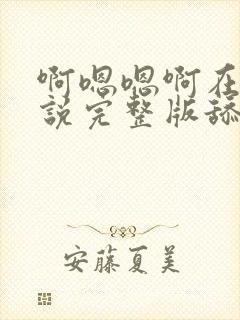 啊嗯嗯啊在
说完整版舔
安藤夏美